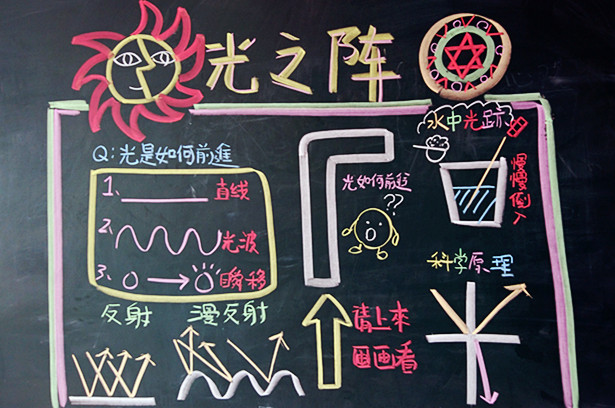 光之阵
Q:光是如何前進
1、直线
2、光波
3、瞬移
反射
漫反射
光如何前進
??
請上來
画画看
水中光跡
慢慢倒入
科学原理